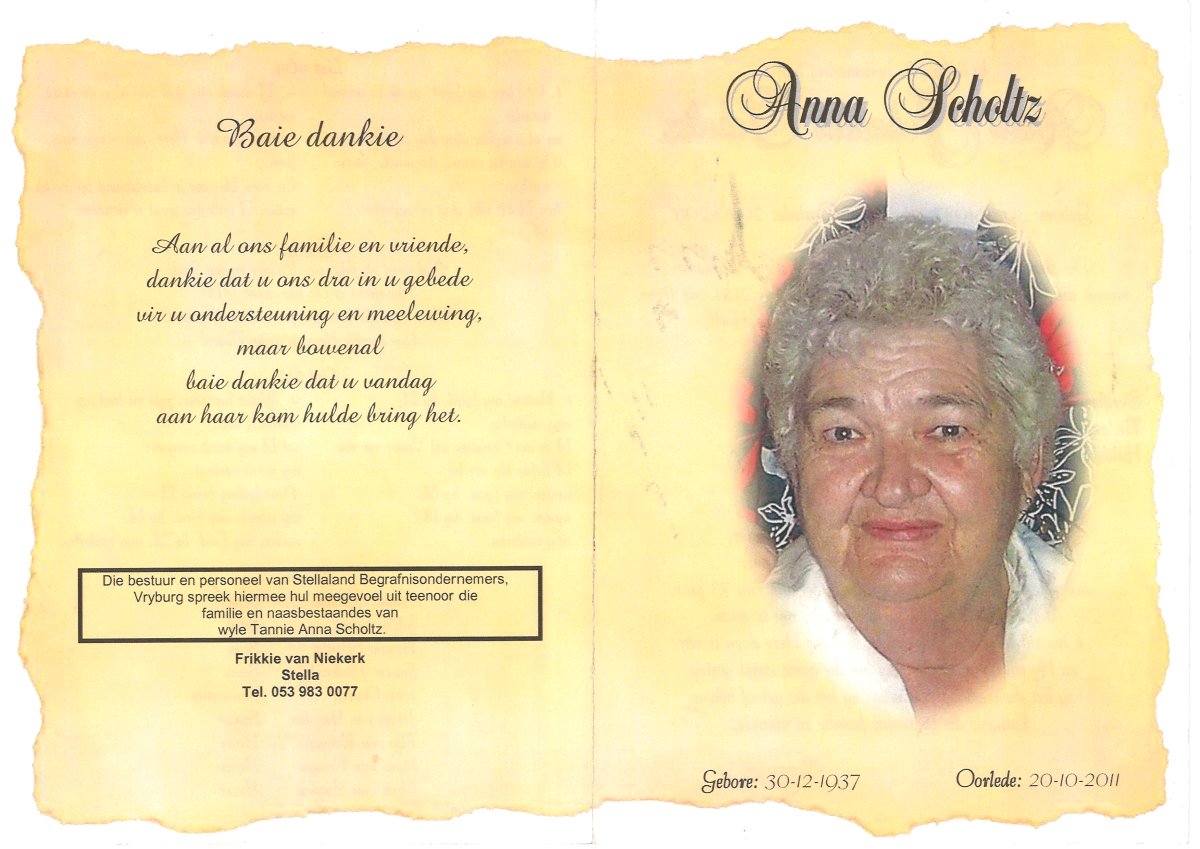 Baie dankie
Aan al ons familie en vriende,
dankie dat u ons dra in u gebede
vir u ondersteuning en meelewing,
maar bowenal
baie dankie dat u vandag
aan haar kom hulde bring het.
Die bestuur en personeel van Stellaland Begrafnisondernemers,
Vryburg spreek hiermee hul meegevoel uit teenoor die
familie en naasbestaandes van
wyle Tannie Anna Scholtz.
Frikkie van Niekerk
Stella
Tel. 053 983 0077
Anna Scholtz
Gebore: 30-12-1937
Oorlede: 20-10-2011